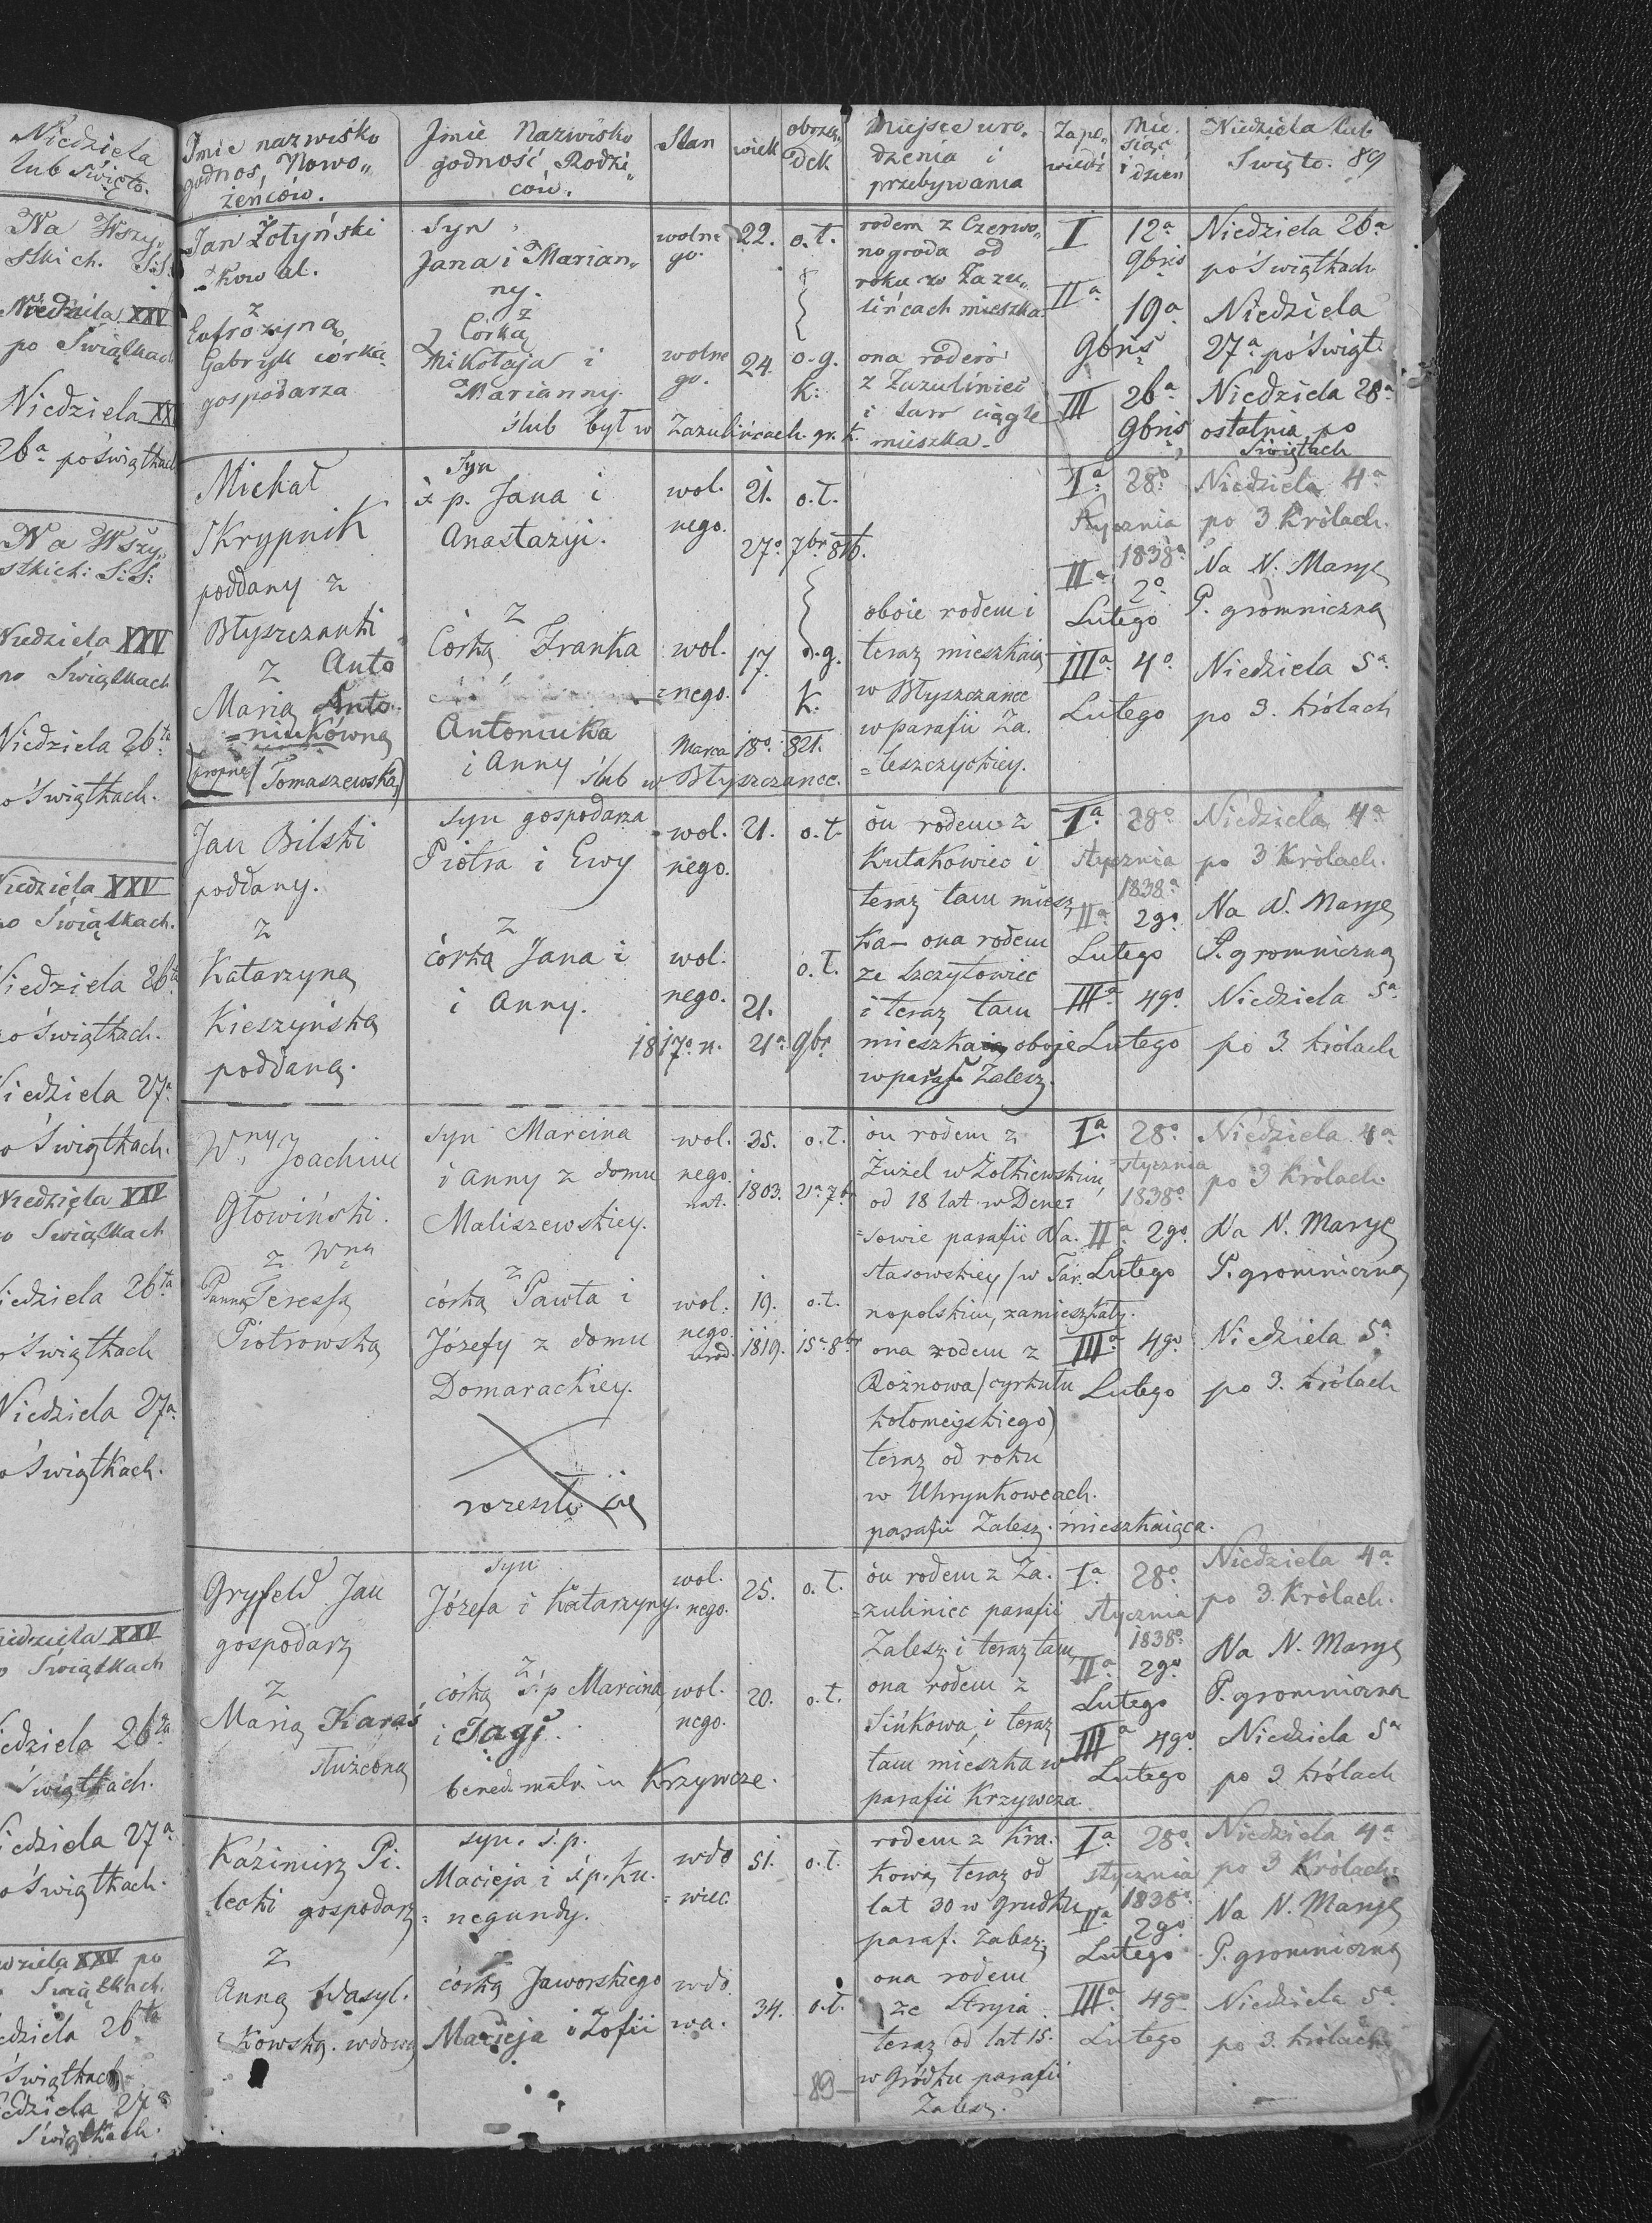 Niedziela
lub Święto.
Na Wszy„
stkich. S.S.
Niedziela XXV
po Świątkach
Niedziela XX
26a po świątkach
Na Wszy„
stkich: S:S:
Niedziela XXV
po Świątkach
Niedziela 26ta
po Świątkach.
Niedziela XXV
po Świątkach.
Niedziela 26ta
po świątkach.
Niedziela 27a
po Świątkach.
Niedziela XXV
po Świątkach
Niedziela 26ta
po Świątkach
Niedziela 27a
po Świątkach.
Niedziela XXV
po Świątkach
Niedziela 26ta
Świątkach.
Niedziela 27a
po Świątkach.
Niedziela XXV po
Świątkach.
Niedziela 26ta
Świątkach
Niedziela 27a
Świątkach.
Imie nazwisko
godnos, Nowo„
żeńców.
Imie Nazwisko
godność Rodzi„
ców.
Stan
wiek
obrzą„
dek
Miejsce uro„
dzenia i
przebywania
Zapo„
wiedź
Mie„
siąc
i dzień
Niedziela lub
Swięto. 89
Jan Żotyński
Kowal.
z
Eufrozyną
Gabryk córką
gospodarza
Syn
Jana i Marian„
ny.
z
Corką
Mikołaja i
Marianny.
ślub był w Zazulińcach gr. k.
wolne
go.
22.
o.t.
wolne
go.
24.
o.g.
k:
rodem z Czerwo„
nogroda od
roku w Zazu„
lińcach mieszka
ona rodem
z Zazuliniec
i tam ciągle
mieszka
I
12a
9bris
Niedziela 26a
po Świątkach
IIa
19a
9bris
Niedziela
27a po Świąt.
III
26a
9bris
Niedziela 28a
ostatnia po
Świątach
Michał
Skrypnik
poddany z
Błyszczanki
z Anto
Marią Anto„
=niukówną
(propne Tomaszewską)
Syn
ś p. Jana i
Anastazyi.
z
Córką Franka
Antoniuka
i Anny ślub w Błyszczance.
wol.
nego.
21.
o.t.
27o 7br 816.
wol.
=nego.
17.
o.g.
k.
Marca 18o 821.
oboie rodem i
teraz mieszkaią
w Błyszczance
w parafii Za„
=leszczyckiey.
Ia
28o
Stycznia
1838a
Niedziela 4a
po 3 Królach.
IIa
2o
Lutego
Na N. Maryę
P. gromniczną
IIIa
4o
Lutego
Niedziela 5a
po 3. królach
Jan Bilski
poddany.
z
Katarzyną
Kieszyńską
poddaną.
Syn gospodarza
Piotra i Ewy
z
córką Jana i
i Anny.
wol.
nego.
21.
o.t.
wol.
nego.
21.
o.t.
1817o n. 21a 9br
ón rodem z
Kułakowiec i
teraz tam miesz
ka – ona rodem
ze Szczytowiec
i teraz tam
mieszkaią oboje
w paraf. Zalesz.
Ia
28o
stycznia
1838a
Niedziela 4a
po 3 Królach.
IIa
2go
Lutego
Na N. Maryę
P. gromniczną
IIIa
4go
Lutego
Niedziela 5a
po 3. królach
Wny Joachim
Głowiński.
z Wną
Panną Teressą
Piotrowską
syn Marcina
i Anny z domu
Maliszewskiey.
z
córką Pawła i
Józefy z domu
Domarackiey.
rozeszli się
wol.
nego.
nat.
35.
1803.
o.t.
21a 7br
wol.
nego.
urod.
19.
1819.
o.t.
15a 8br
ón rodem z
Żużel w Żółkiewskim,
od 18 lat w Dene=
=sowie parafii Na.
stasowskiey /w Tar.
nopolskim, zamieszkały.
ona rodem z
Rożnowa/cyrkułu
kołomejskiego)
teraz od roku
w Uhrynkowcach.
parafii Zalesz. mieszkaiąca.
Ia
28o
stycznia
1838o
Niedziela 4a
po 3 Królach.
IIa
2go
Lutego
Na N. Maryę
P. gromniczną
IIIa
4go
Lutego
Niedziela 5a
po 3. królach
Gryfeld Jan
gospodarz
z
Marią Karaś
służącą
syn
Józefa i Katarzyny.
z
córką Ś.p Marcina
i Jagi
bened. matr. in Krzywcze.
wol.
nego.
25.
o.t.
wol.
nego.
20.
o.t.
ón rodem z Za.
=zuliniec parafii
Zalesz. i teraz tam,
ona rodem z
Sińkowa, i teraz
tam mieszka w
parafii Krzywcza
Ia
28o
stycznia
1838o
Niedziela 4a
po 3. Królach.
IIa
2go
Lutego
Na N. Maryę
P. gromniczna
III a
4go
Lutego
Niedziela 5a
po 3 królach
Kaźimirz Pi.
lecki gospodarz
z
Anną Wasyl.
kowską. wdową
syn. ś.p.
Macieja i ś.p. Ku.
=negundy.
córką Jaworskiego
Macieja i Zofii
wdo
=wiec
51.
o.t.
wdo.
wa.
34.
o.t.
rodem z Kra.
kowa, teraz od
lat 30 w Grudku
paraf. Zalesz.
ona rodem
ze Stryia
teraz od lat 15.
w Gródku parafii
Zalesz.
Ia
28o
stycznia
1838a
Niedziela 4a
po 3 Królach.
IIa
2go
Lutego
Na N. Maryę
P. gromniczną
IIIa
4go
Lutego
Niedziela 5a
po 3. królach
89